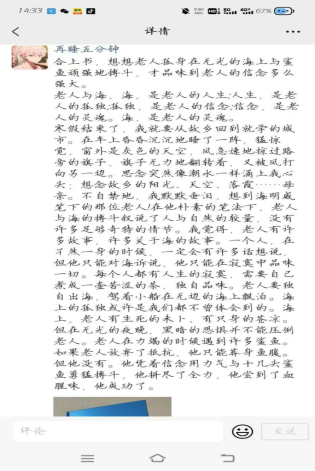 14:33
67%
详情
再睡五分钟
合上书，想想老人孤身在无光的海上与鲨
鱼顽强地搏斗，才品味到老人的信念多么
强大。
老人与海，海，是老人的人生;人生，是老
人的孤独;孤独，是老人的信念;信念，是老
人的灵魂。海，是老人的灵魂。
寒假结束了，我就要从故乡回到就学的城
市。在车上昏昏沉沉地睡了一阵，猛惊
觉，窗外是灰色的天空，风急速地掠过路
旁的旗子，旗子无力地翻转着，又被风打
向另一边。思念突然像潮水一样涌上我心
头：想念故乡的阳光、天空、落霞……母
亲。不自禁地，我默默垂泪，想到海明威
笔下的那位老人!在他朴素的笔法下，老人
与海的搏斗叙说了人与自然的较量，没有
许多足够奇特的情节。我觉得，老人有许
多故事，许多关于海的故事。一个人，在
孑然一身的时候，一定会有许多话想说，
但他只能对海诉说，他只能在寂寞中品味
一切。每个人都有人生的寂寞，需要自己
煮成一壶苦涩的茶，独自品味。老人要独
自出海，驾着小船在无边的海上飘泊。海
上的孤独或许是我们都不曾体会到的。海
上，老人有生死的未卜，有只身的苍凉。
但在无光的夜晚，黑暗的恐惧并不能压倒
老人。老人在力竭的时候遇到许多鲨鱼。
如果老人放弃了抵抗，他只能葬身鱼腹。
但他没有。他凭着信念用力气与十几头鲨
鱼勇猛搏斗，他拼尽了全力，他尝到了血
腥味，他成功了。
评论
发送